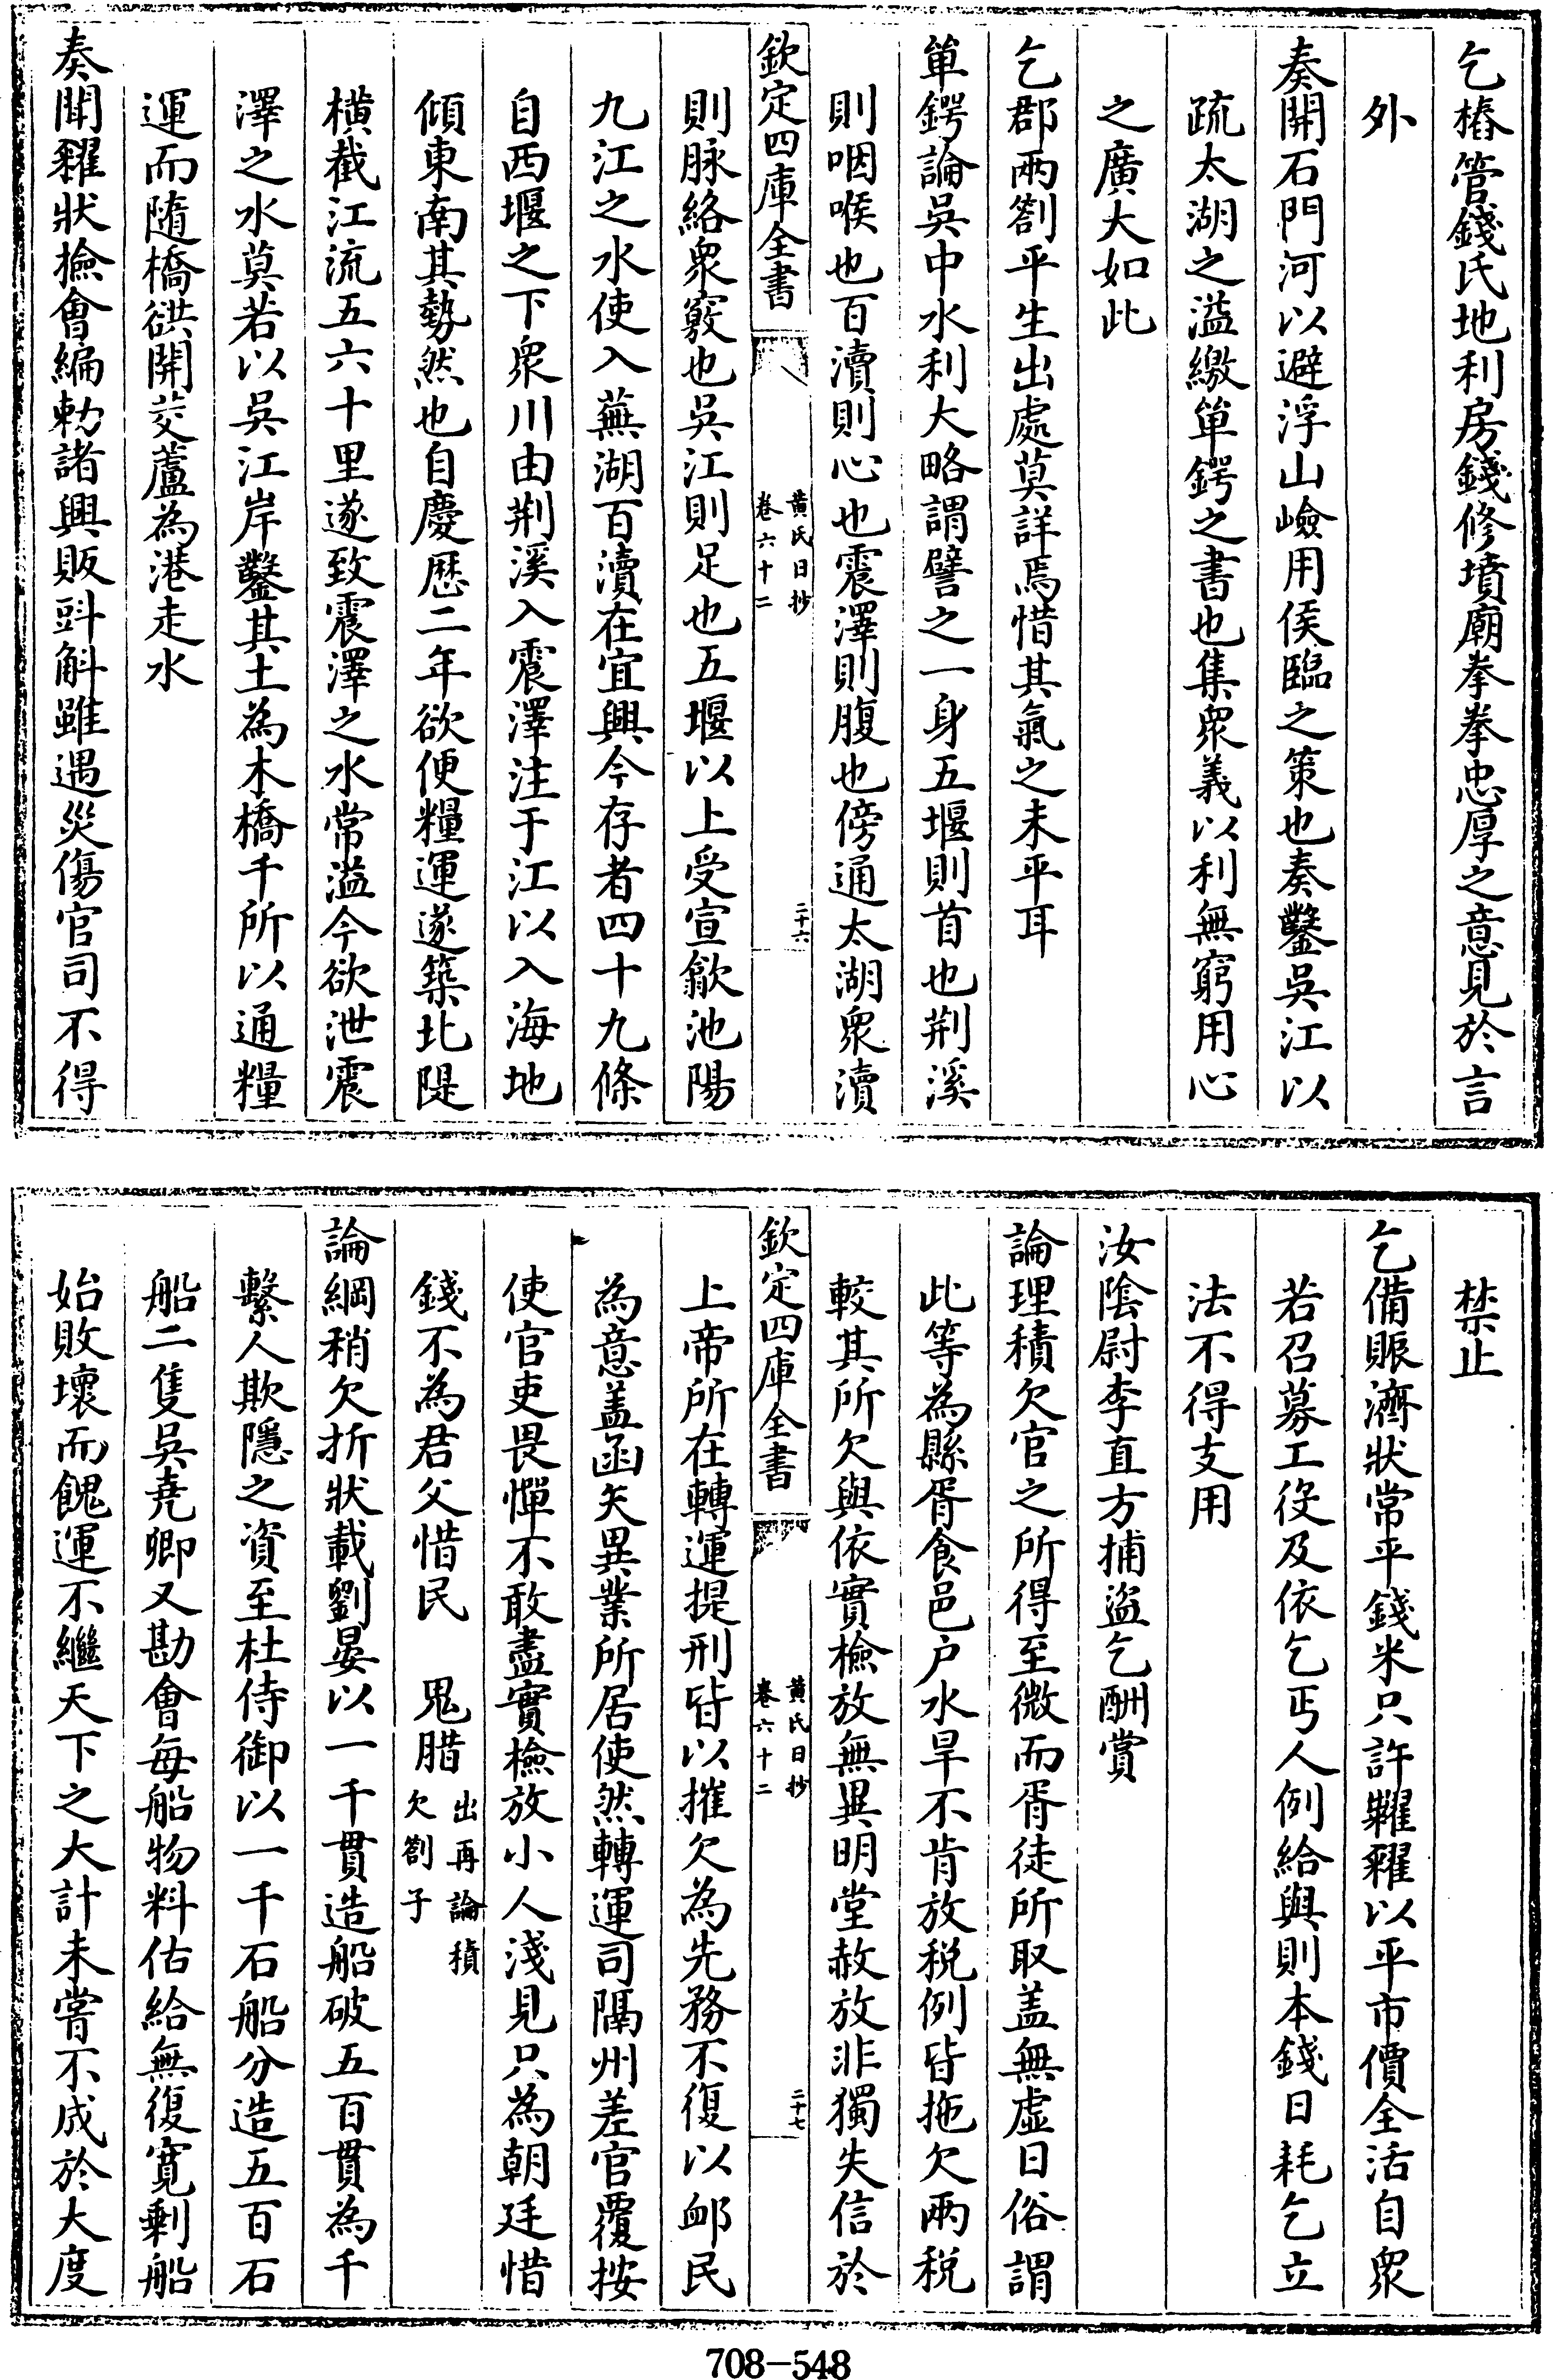 乞樁管錢氏地利房錢修墳廟拳拳忠厚之意見於言
外
奏開石門河以避浮山嶮用侯臨之策也奏鑿吳江以
疏太湖之溢繳單鍔之書也集衆義以利無窮用心
之廣大如此
乞郡兩劄平生出處莫詳焉惜其氣之未平耳
單鍔論吳中水利大略謂譬之一身五堰則首也荆溪
則咽喉也百瀆則心也震澤則腹也傍通太湖衆瀆
欽定四庫全書
黄氏日抄
卷六十二
二十六
則脉絡衆竅也吳江則足也五堰以上受宣歙池陽
九江之水使入蕪湖百瀆在宜興今存者四十九條
自西堰之下衆川由荆溪入震澤注于江以入海地
傾東南其勢然也自慶歷二年欲便糧運遂築北隄
橫截江流五六十里遂致震澤之水常溢今欲泄震
澤之水莫若以吳江岸鑿其土為木橋千所以通糧
運而隨橋谼開茭蘆為港走水
奏聞糴狀撿會編勅諸興販㪷斛雖遇災傷官司不得
禁止
乞備賑濟狀常平錢米只許糶糴以平市價全活自衆
若召募工役及依乞丐人例給與則本錢日耗乞立
法不得支用
汝陰尉李直方捕盜乞酬賞
論理積欠官之所得至微而胥徒所取盖無虚日俗謂
此等為縣胥食邑户水旱不肯放税例皆拖欠兩税
較其所欠與依實檢放無異明堂赦放非獨失信於
欽定四庫全書
黄氏日抄
卷六十二
二十七
上帝所在轉運提刑皆以摧欠為先務不復以䘏民
為意盖函矢異業所居使然轉運司隔州差官覆按
使官吏畏憚不敢盡實檢放小人淺見只為朝廷惜
錢不為君父惜民　鬼腊出再論積欠劄子
論綱稍欠折狀載劉晏以一千貫造船破五百貫為千
繫人欺隱之資至杜侍御以一千石船分造五百石
船二隻吳堯卿又勘會每船物料估給無復寛剩船
始敗壞而餽運不繼天下之大計未嘗不成於大度
708-548